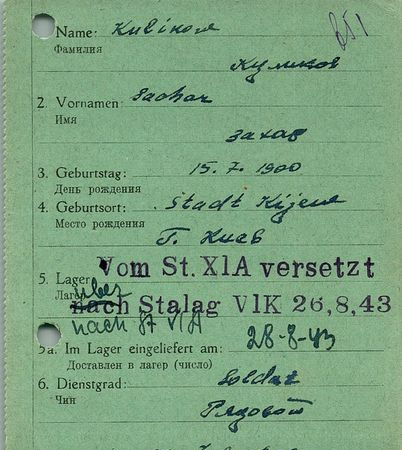 Name: Kulikow
Фамилия
Куликов
2. Vornamen: Sachar
Имя
Захар
3. Geburtstag: 15.7.1900
День рождения
4. Geburtsort: Stadt Kijew
Место рождения
Г. Киев
Vom St. XIA versetzt
5. Lager
Лагерь über
nach Stalag VIK 26,8,43
nach St VIA
5a. Im Lager eingeliefert am: 28-8-43
Доставлен в лагерь (число)
6. Dienstgrad: Soldat
Чин
Рядовой